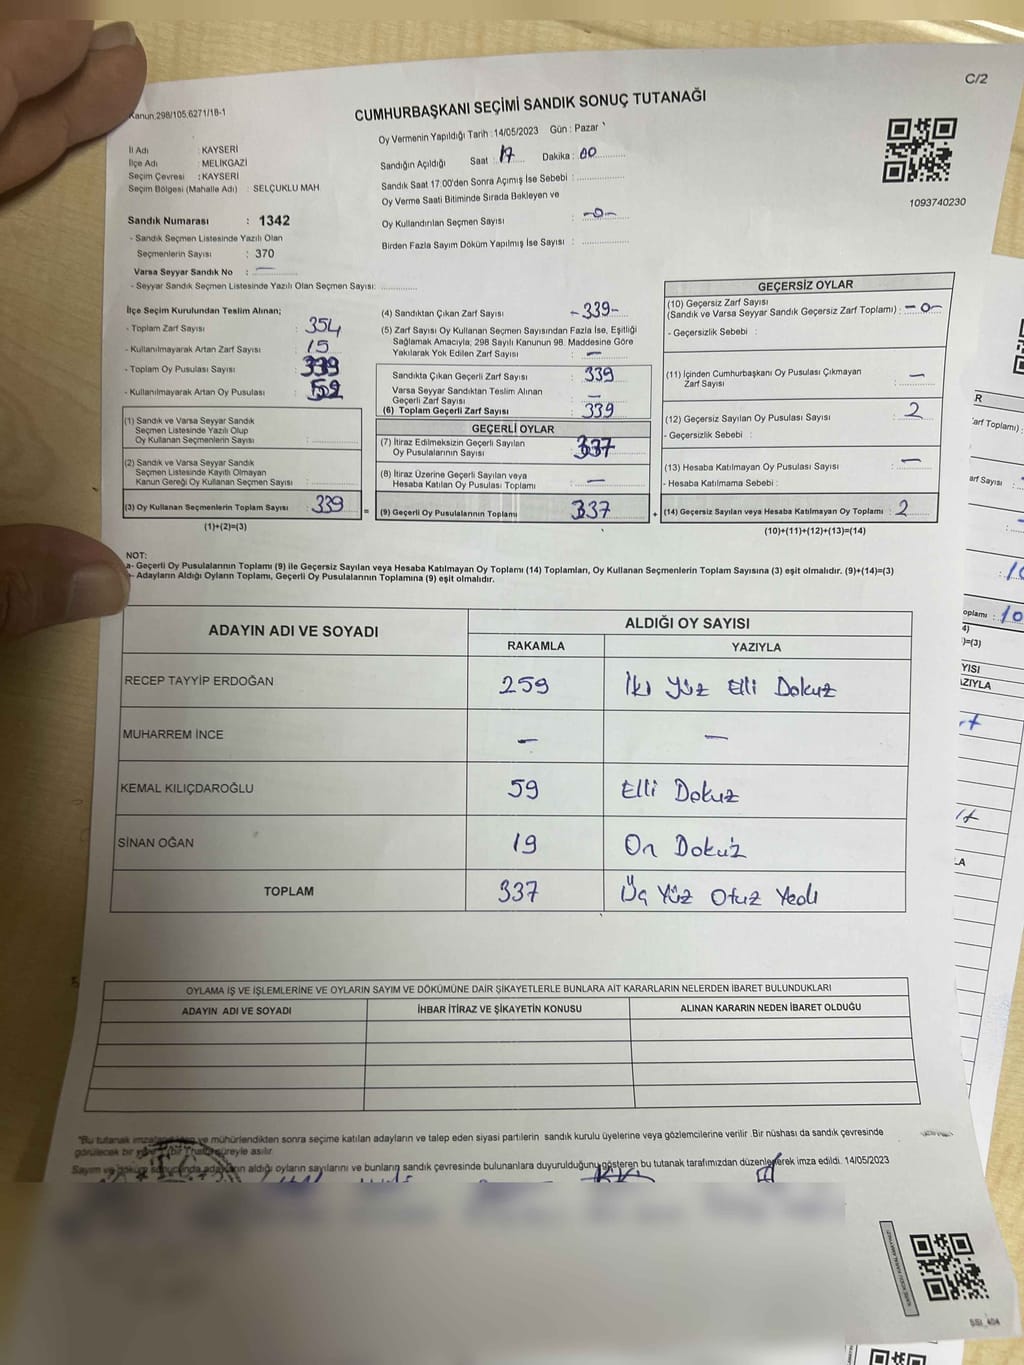 C/2
Kanun:298/105,6271/18-1
CUMHURBAŞKANI SEÇİMİ SANDIK SONUÇ TUTANAĞI
İl Adı : KAYSERİ
İlçe Adı : MELİKGAZİ
Seçim Çevresi : KAYSERİ
Seçim Bölgesi (Mahalle Adı) : SELÇUKLU MAH
Sandık Numarası : 1342
- Sandık Seçmen Listesinde Yazılı Olan
Seçmenlerin Sayısı : 370
Varsa Seyyar Sandık No : —
- Seyyar Sandık Seçmen Listesinde Yazılı Olan Seçmen Sayısı:
Oy Vermenin Yapıldığı Tarih : 14/05/2023 Gün : Pazar
Sandığın Açıldığı Saat : 17 Dakika : 00
Sandık Saat 17.00'den Sonra Açımış İse Sebebi :
Oy Verme Saati Bitiminde Sırada Bekleyen ve
Oy Kullandırılan Seçmen Sayısı : -0-
Birden Fazla Sayım Döküm Yapılmış İse Sayısı :
1093740230
İlçe Seçim Kurulundan Teslim Alınan;
- Toplam Zarf Sayısı : 354
- Kullanılmayarak Artan Zarf Sayısı : 15
- Toplam Oy Pusulası Sayısı : 339
- Kullanılmayarak Artan Oy Pusulası :
(1) Sandık ve Varsa Seyyar Sandık
Seçmen Listesinde Yazılı Olup
Oy Kullanan Seçmenlerin Sayısı :
(2) Sandık ve Varsa Seyyar Sandık
Seçmen Listesinde Kayıtlı Olmayan
Kanun Gereği Oy Kullanan Seçmen Sayısı :
(3) Oy Kullanan Seçmenlerin Toplam Sayısı : 339
(1)+(2)=(3)
(4) Sandıktan Çıkan Zarf Sayısı : -339-
(5) Zarf Sayısı Oy Kullanan Seçmen Sayısından Fazla İse, Eşitliği
Sağlamak Amacıyla; 298 Sayılı Kanunun 98. Maddesine Göre
Yakılarak Yok Edilen Zarf Sayısı : —
Sandıkta Çıkan Geçerli Zarf Sayısı : 339
Varsa Seyyar Sandıktan Teslim Alınan
Geçerli Zarf Sayısı : —
(6) Toplam Geçerli Zarf Sayısı : 339
GEÇERLİ OYLAR
(7) İtiraz Edilmeksizin Geçerli Sayılan
Oy Pusulalarının Sayısı : 337
(8) İtiraz Üzerine Geçerli Sayılan veya
Hesaba Katılan Oy Pusulası Toplamı : —
(9) Geçerli Oy Pusulalarının Toplamı : 337
GEÇERSİZ OYLAR
(10) Geçersiz Zarf Sayısı
(Sandık ve Varsa Seyyar Sandık Geçersiz Zarf Toplamı) : -0-
- Geçersizlik Sebebi :
(11) İçinden Cumhurbaşkanı Oy Pusulası Çıkmayan
Zarf Sayısı : —
(12) Geçersiz Sayılan Oy Pusulası Sayısı : 2
- Geçersizlik Sebebi :
(13) Hesaba Katılmayan Oy Pusulası Sayısı : —
- Hesaba Katılmama Sebebi :
(14) Geçersiz Sayılan veya Hesaba Katılmayan Oy Toplamı : 2
(10)+(11)+(12)+(13)=(14)
NOT:
a- Geçerli Oy Pusulalarının Toplamı (9) ile Geçersiz Sayılan veya Hesaba Katılmayan Oy Toplamı (14) Toplamları, Oy Kullanan Seçmenlerin Toplam Sayısına (3) eşit olmalıdır. (9)+(14)=(3)
- Adayların Aldığı Oyların Toplamı, Geçerli Oy Pusulalarının Toplamına (9) eşit olmalıdır.
ADAYIN ADI VE SOYADI ALDIĞI OY SAYISI
RAKAMLA YAZIYLA
RECEP TAYYİP ERDOĞAN 259 İki Yüz Elli Dokuz
MUHARREM İNCE — —
KEMAL KILIÇDAROĞLU 59 Elli Dokuz
SİNAN OĞAN 19 On Dokuz
TOPLAM 337 Üç Yüz Otuz Yedi
OYLAMA İŞ VE İŞLEMLERİNE VE OYLARIN SAYIM VE DÖKÜMÜNE DAİR ŞİKAYETLERLE BUNLARA AİT KARARLARIN NELERDEN İBARET BULUNDUKLARI
ADAYIN ADI VE SOYADI İHBAR İTİRAZ VE ŞİKAYETİN KONUSU ALINAN KARARIN NEDEN İBARET OLDUĞU
"Bu tutanak ve mühürlendikten sonra seçime katılan adayların ve talep eden siyasi partilerin sandık kurulu üyelerine veya gözlemcilerine verilir .Bir nüshası da sandık çevresinde
görülecek bir yere bir hafta süreyle asılır.
Sayım ve döküm sonucunda adayların aldığı oyların sayılarını ve bunların sandık çevresinde bulunanlara duyurulduğunu gösteren bu tutanak tarafımızdan düzenlenerek imza edildi. 14/05/2023